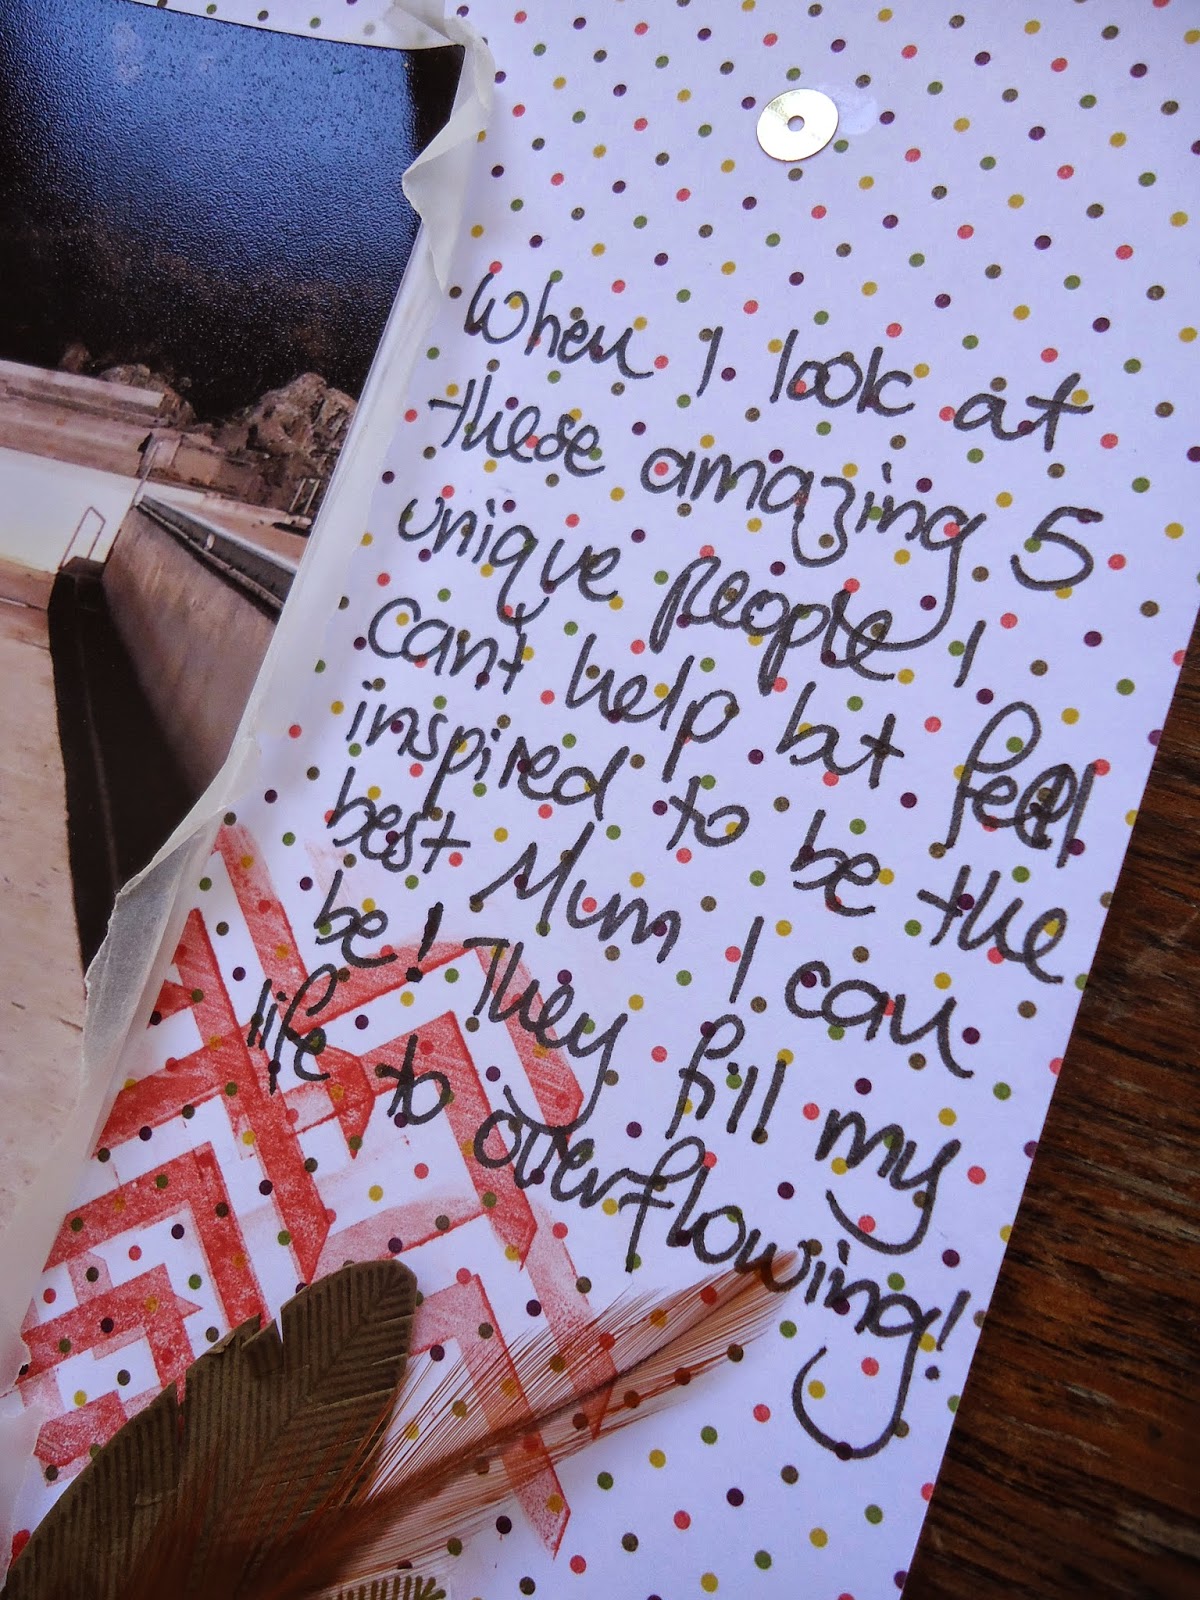 When I look at
these amazing 5
unique people I
can't help but feel
inspired to be the
best Mum I can
be! They fill my
life to overflowing!